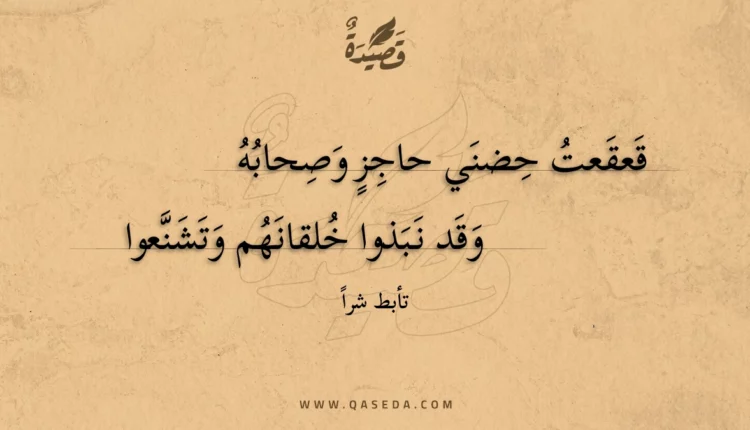 قَصِيْدَةٌ
قَعقَعتُ حِضنَي حاجِزٍ وَصِحابُهُ
وَقَد نَبَذوا خُلقانَهُم وَتَشَنَّعوا
تأبط شراً
WWW.QASEDA.COM